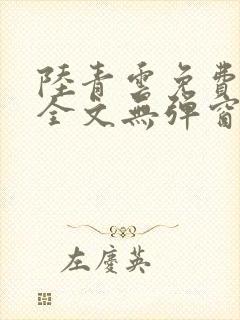 陸青雲免費
全文無彈窗
左慶英